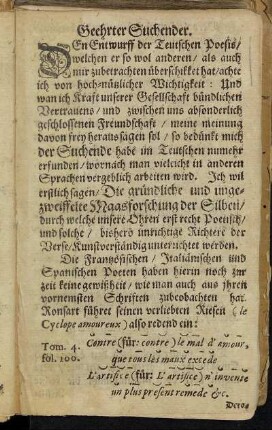 Geehrter Suchender.
DEn Entwurff der Teutschen Poesis/
welchen er so wol anderen/ als auch
mir zubetrachten überschikket hat/ achte
ich von hoch-nüzlicher Wichtigkeit: Und
wan ich Kraft unserer Gesellschaft bündlichen
Vertrauens/ und zwischen uns absonderlich
geschlossenen Freundschaft/ meine meinung
davon frey heraus sagen sol/ so bedünkt mich
der Suchende habe im Teutschen numehr
erfunden/ wornach man vieleicht in anderen
Sprachen vergeblich arbeiten wird. Ich wil
erstlich sagen/ Die gründliche und unge-
zweiffelte Maasforschung der Silben/
durch welche unsere Ohren erst recht Poetisch/
und solche/ bishero unrichtige Richtere der
Verse/ Kunstverständig unterrichtet werden.
Die Französischen/ Italiänischen und
Spanischen Poeten haben hierin noch zur
zeit keine gewisheit/ wie man auch aus ihren
vornemsten Schriften zubeobachten hat.
Ronsart führet seinen verliebten Riesen (le
Cyclope amoureux) also redend ein:
Tom. 4. Contre (für: contre) le mal d'amour,
fol. 100. que tous lès maux excede
L'artifice (für: L'artifice) n'invente
un plus present remede &c.